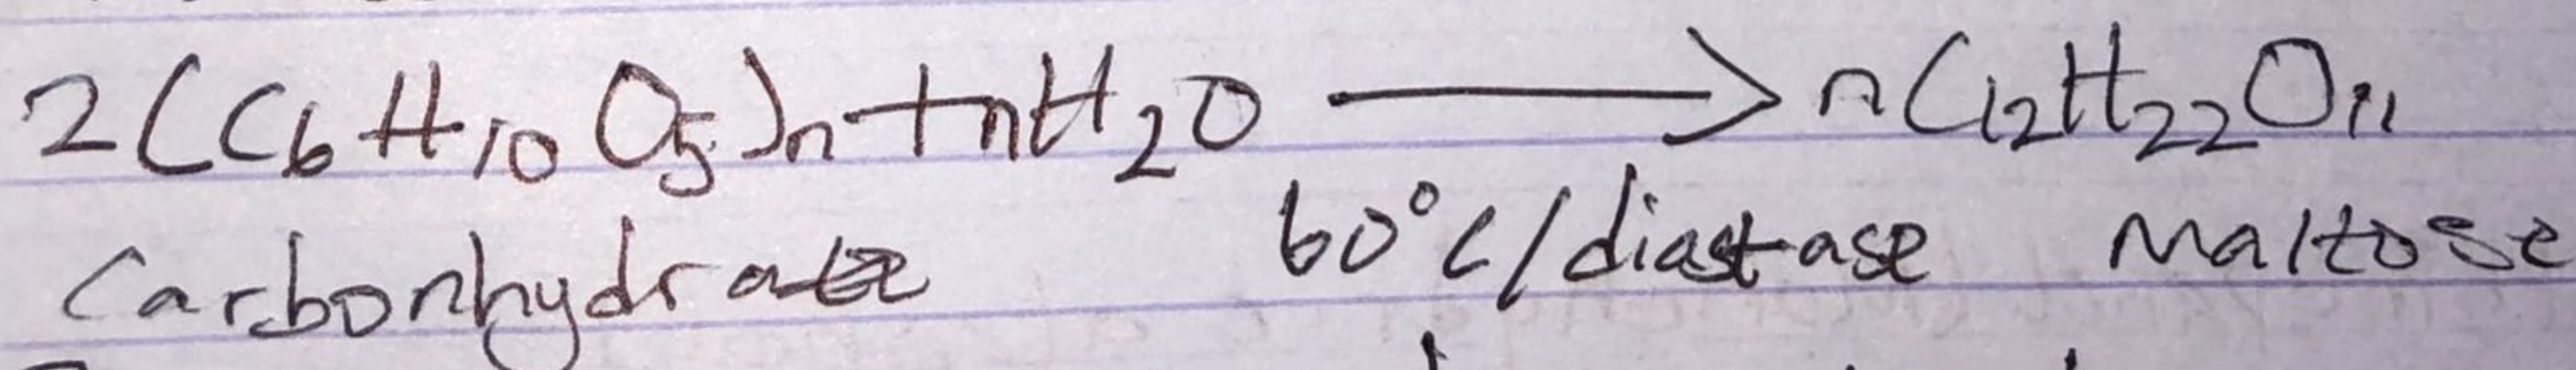 2(C6H10O5)n + nH2O ⟶ nC12H22O11
Carbonhydrate 60°C/diastase Maltose